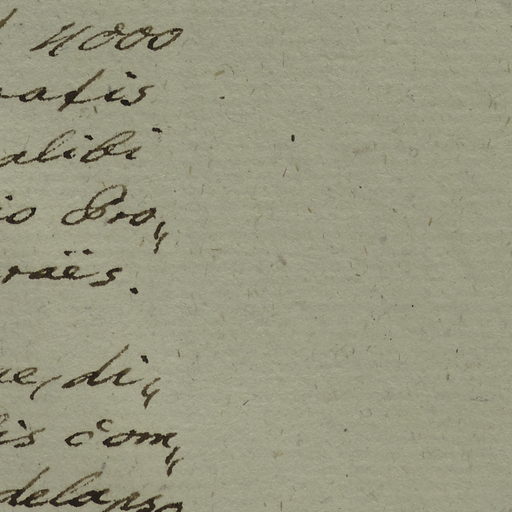 4000
natis
alibi
io Pro„
raës.
ue, di„
lis com„
delapso